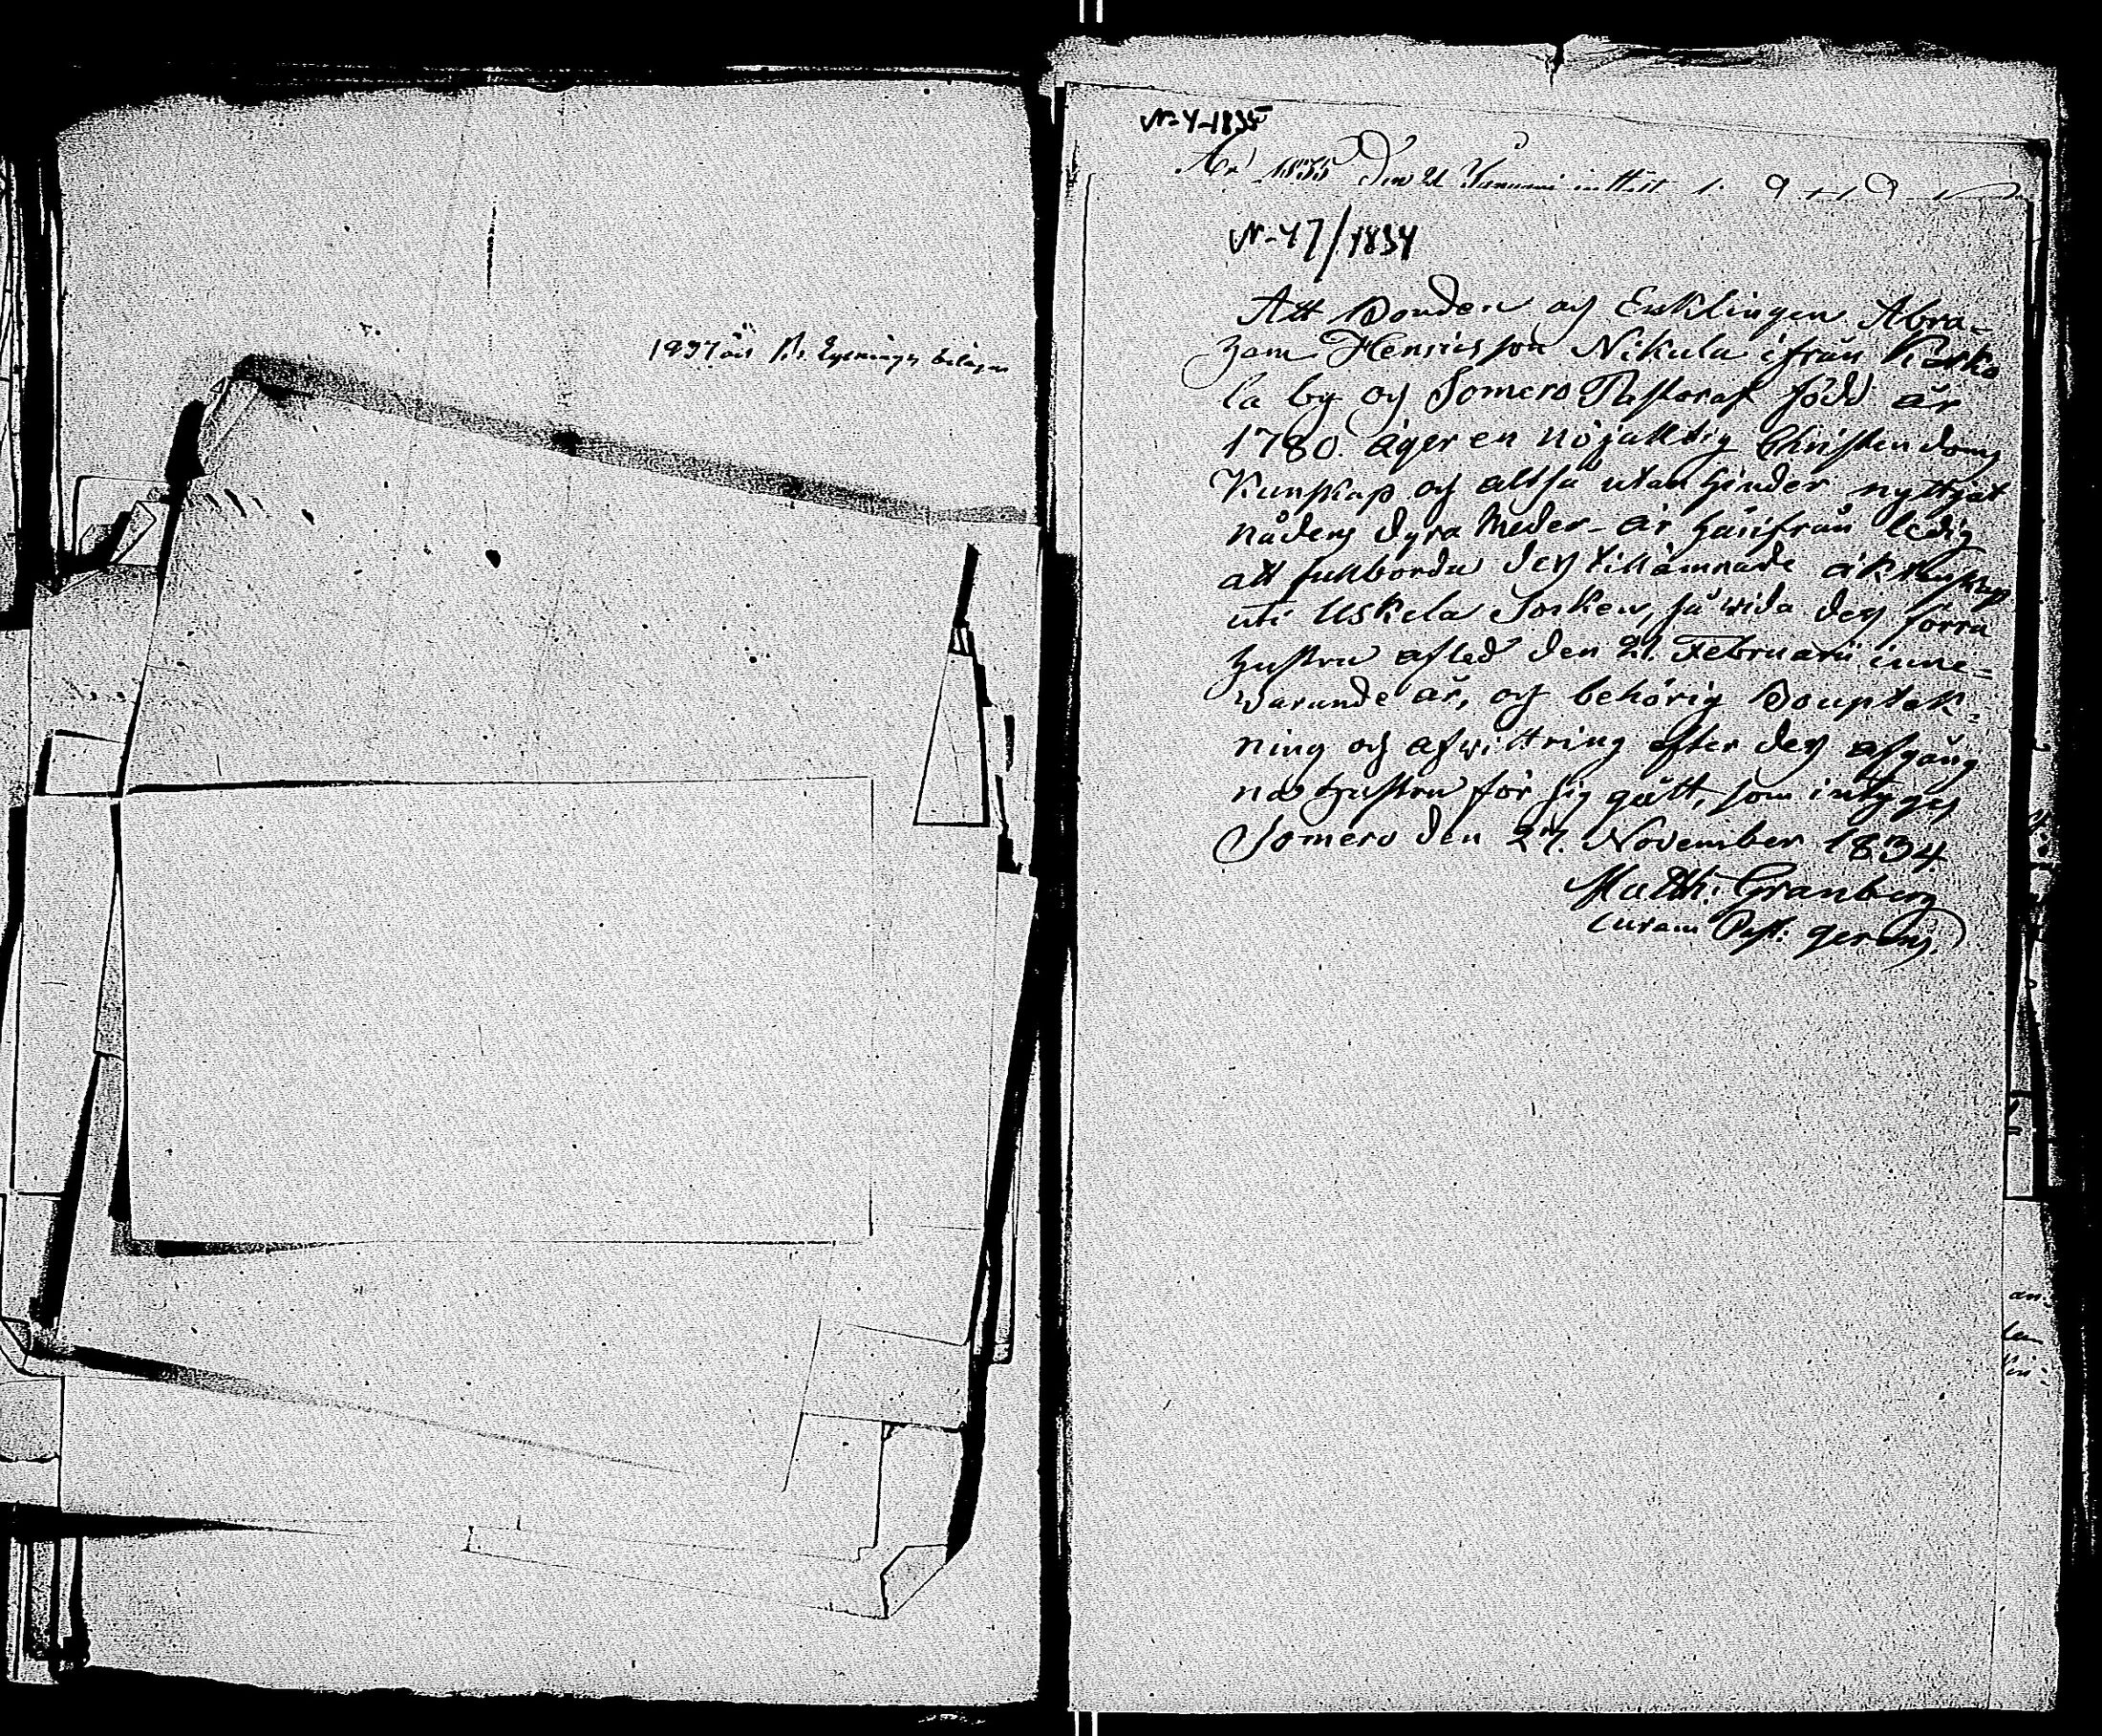 1837 års
N-4-1835
År 1835 Den 21 Januari
N-47/1834
Att Bonden och Enklingen Abra-
ham Henricsson Nikula ifrån Kerko
la by och Somero Pastorat född år
1780. äger en nöjaktig Christendoms
Kunskap och altså utan hinder nyttjat
nådens dyra Meder - är härifrån ledig
att fullborda dess tillämnade äktenskap
uti Uskela Socken, så vida dess förra
hustru afled den 21. Februarii inne-
warande år, och behörig Bouptek-
ning och afwittring efter dess afgång
na hustru för sig gått, som intyges
Somero den 27. November 1834.
Matth: Granberg
curam Past: gerens.